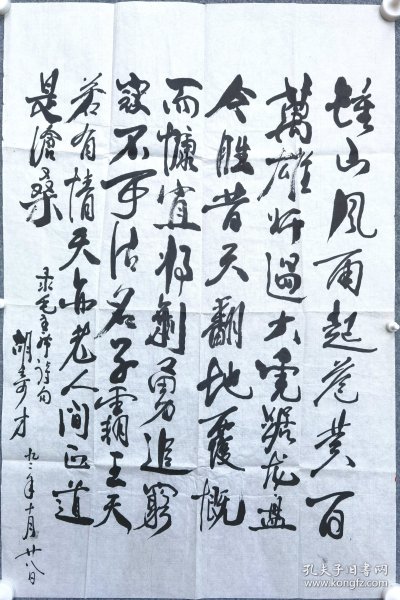 鍾山风雨起蒼黄百
萬雄师過大虎踞龙盘
今勝昔天翻地覆慨
而慷宜将剩勇追窮
寇不可沽名学霸王天
若有情天亦老人间正道
是滄桑
录毛主席诗句
胡奇才
九二年十月廿八日
孔夫子旧书网
www.kongfz.com